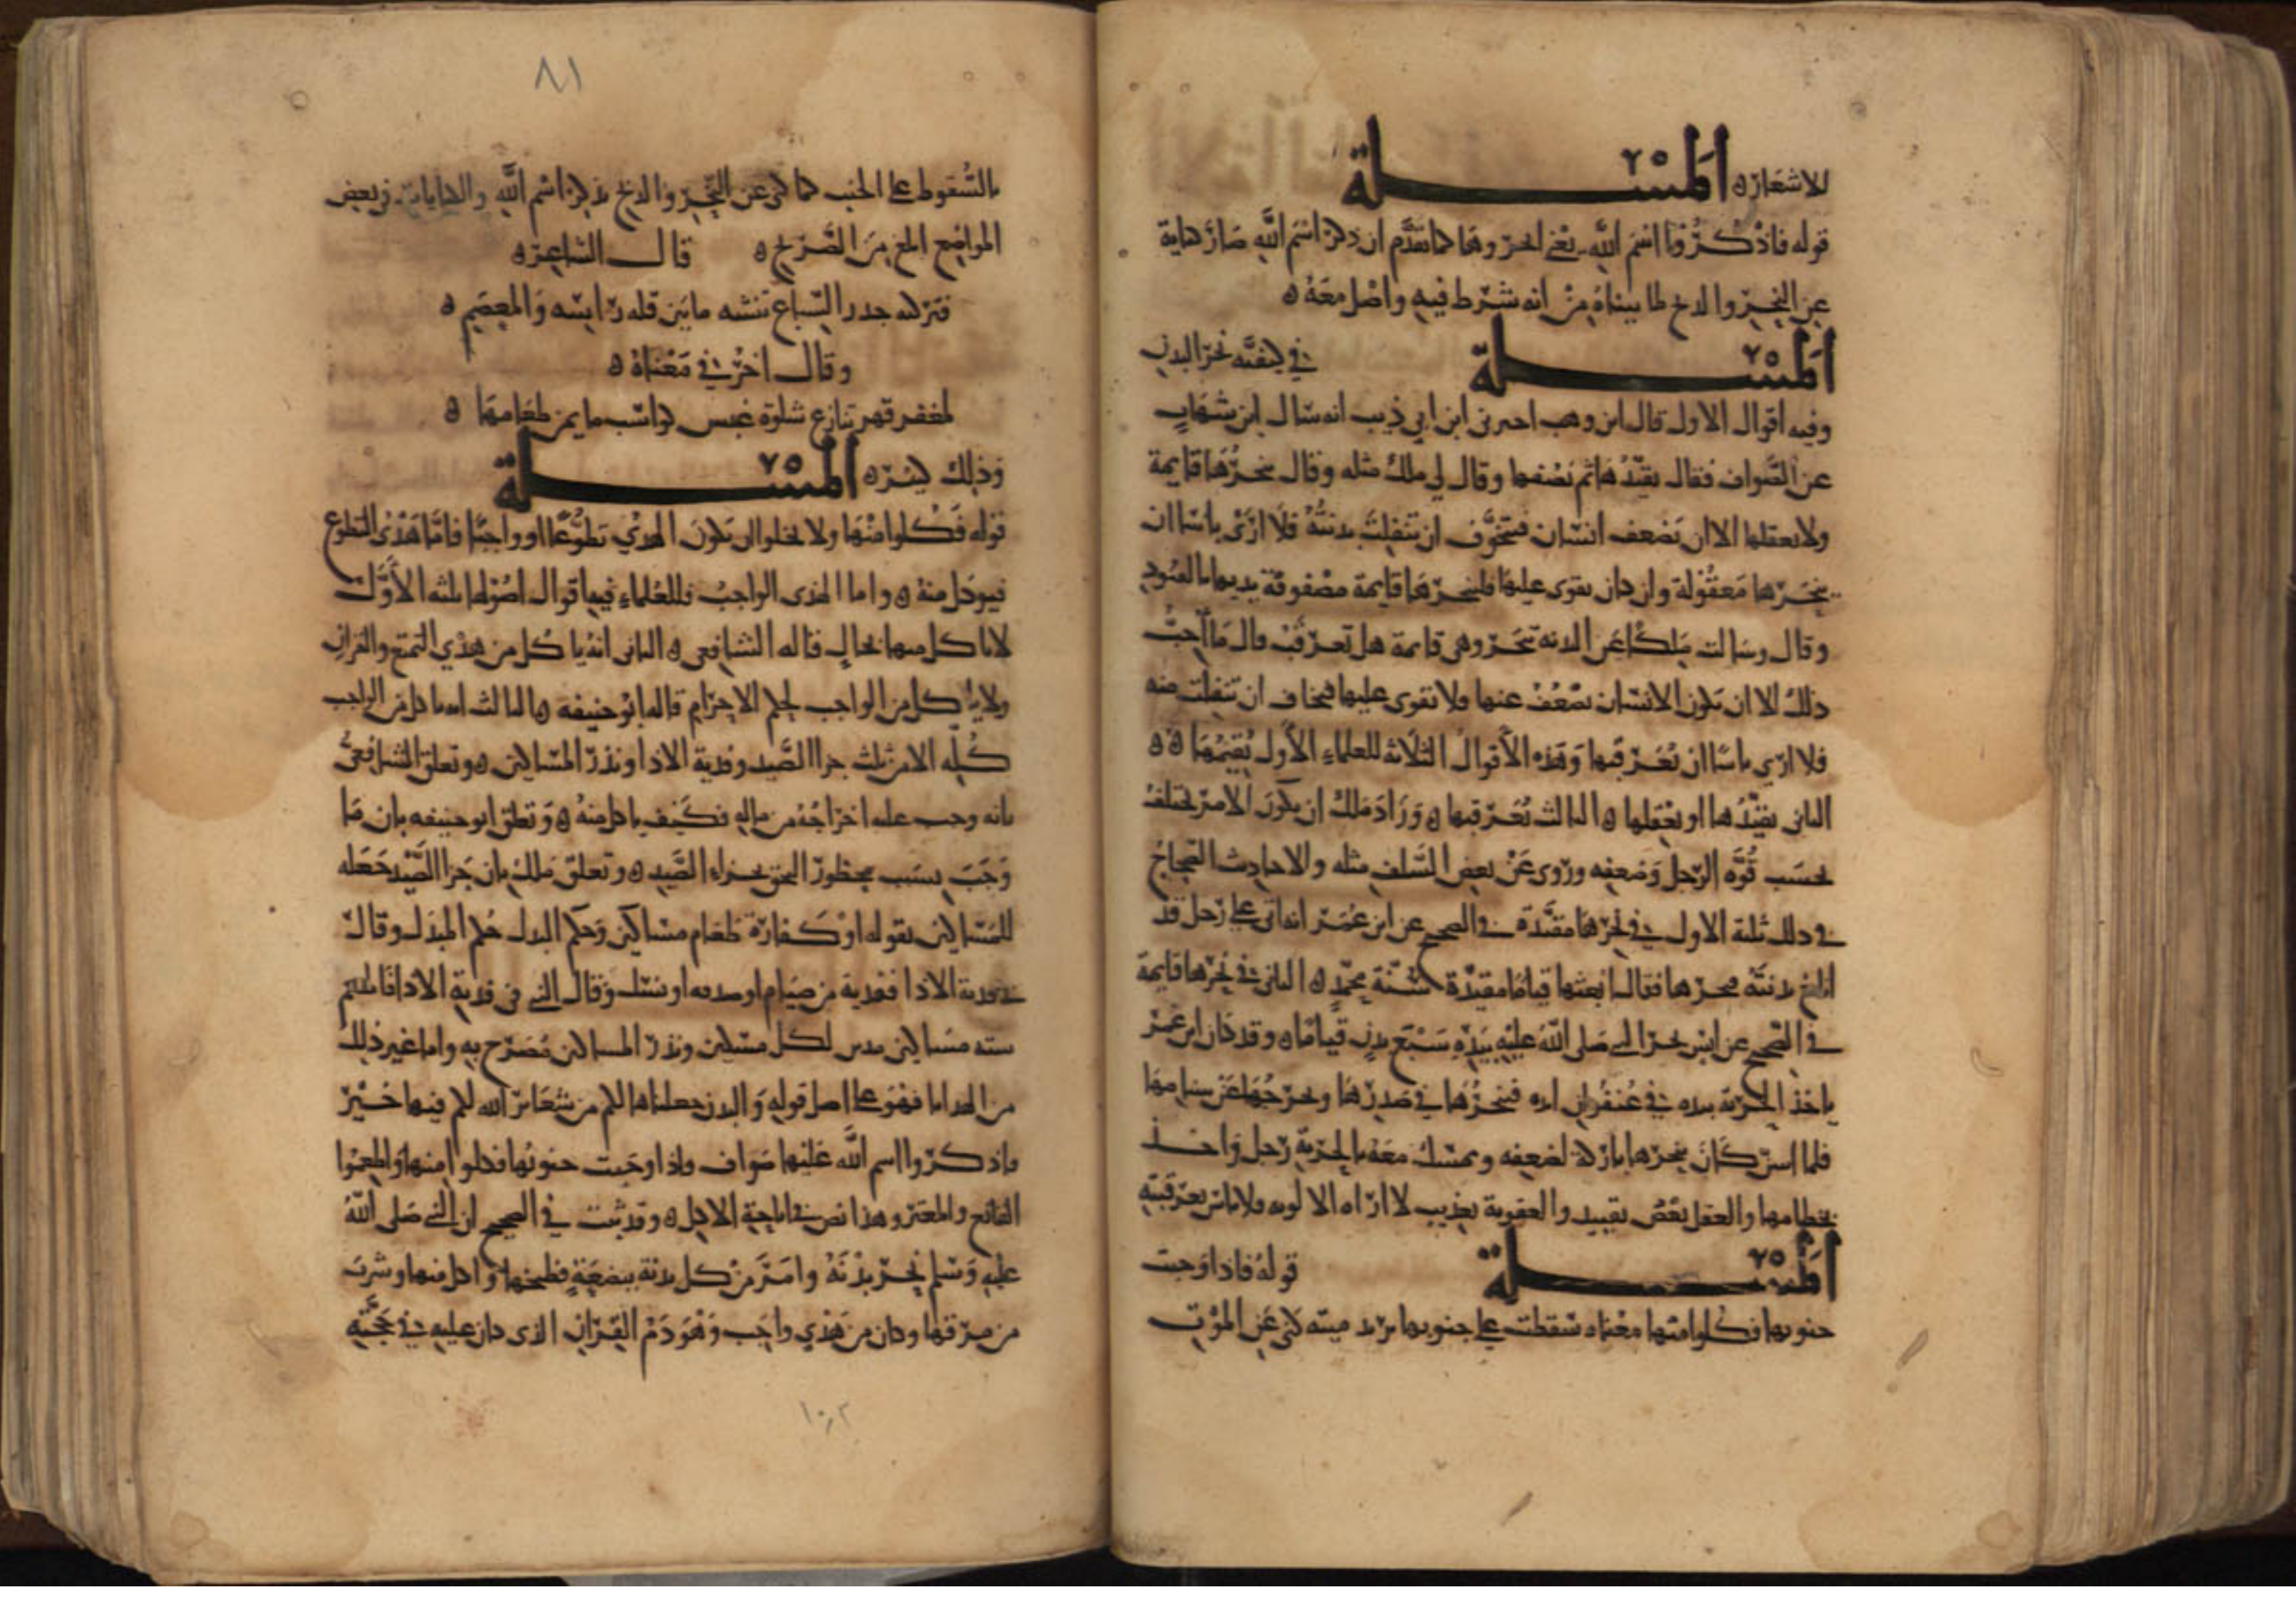 للاشعاره المسلة
قوله فاذكروا اسم الله يعني انحروها كما تقدم ان ذكر اسم الله صار كناية
عن النحر والذبح لما بيناه من انه شرط فيه واصل معه ه
المسلة في كيفية نحر البدن
وفيه اقوال الاول قال ابن وهب اخبرني ابن ابي ذيب انه سال ابن شهاب
عن الصواف فقال تقيدها ثم تصفها وقال لي ملك مثله وقال ينحرها قايمة
ولا يعقلها الا ان يضعف انسان فيتخوف ان تنفلت بدنته فلا ارى باسا ان
ينحرها معقولة وان كان يقوى عليها فلينحرها قايمة مصفوفة يديها بالقيود
وقال وسالت ملكا عن البدنة تنحر وهي قايمة هل تعرقب قال ما احب
ذلك الا ان يكون الانسان يضعف عنها ولا يقوى عليها فيخاف ان تنفلت منه
فلا ارى باسا ان يعرقبها وهذه الاقوال الثلاثة للعلماء الاول يقيمها ه ه
الثاني يقيدها او يعقلها ه الثالث يعرقبها ه وزاد ملك ان يكون الامر يختلف
بحسب قوة الرجل وضعفه وروى عن بعض السلف مثله والاحاديث الصحاح
في ذلك ثلثة الاول في نحرها مقيدة في الصحيح عن ابن عمر انه اتى على رجل قد
اناخ بدنته ينحرها فقال ابعثها قياما مقيدة سنة محمد ه الثاني في نحرها قايمة
في الصحيح عن انس نحر النبي صلى الله عليه بيده سبع بدن قياما ه وقد كان ابن عمر
ياخذ الحربة بيده في عنفوان ايده فينحرها في صدرها ويخرجها عن سنامها
فلما اسن كان ينحرها باركة لضعفه ويمسك معه بالحربة رجل واخذ
بخطامها والعقل بعض تقييد والعرقبة تعذيب لا اراه الا لو فلا باس بعرقبته
المسلة قوله فاذا وجبت
جنوبها فكلوا منها معناه سقطت على جنوبها يريد ميتة كنى عن الموت
٨١
بالسقوط على الجنب كما كنى عن النحر والذبح بذكر اسم الله والكنايات في بعض
المواضع ابلغ من التصريح ه قال الشاعر ه
فتركته جزر السباع ينشنه ما بين قلة راسه والمعصم ه
وقال اخر في معناه ه
لمعفر قهد تنازع شلوه غبس كواسب ما يمن طعامها ه
وذلك كثير ه المسلة
قوله فكلوا منها ولا يخلوا ان يكون الهدي تطوعا او واجبا فاما هدي التطوع
فيوكل منه ه واما الهدي الواجب فللعلماء فيه اقوال اصولها ثلثة الاول
لا ياكل منها بحال قاله الشافعي ه الثاني انه ياكل من هدي التمتع والقران
ولا ياكل من الواجب بحكم الاحرام قاله ابو حنيفه ه الثالث انه ياكل من الواجب
كله الا من ثلث جزا الصيد وفدية الاذا ونذر المساكين ه وتعلق الشافعي
بانه وجب عليه اخراجه من ماله فكيف ياكل منه ه وتعلق ابو حنيفه بان ما
وجب بسبب محظور التحق بجزاء الصيد ه وتعلق ملك بان جزا الصيد جعله
للمساكين بقوله او كفارة طعام مساكين وحكم البدل حكم المبدل وقال
في فدية الاذا ففدية من صيام او صدقة او نسك وقال النبي في فدية الاذا واطعم
ستة مساكين مدين لكل مسكين ونذر المساكين مصرح به واما غير ذلك
من الهدايا فهو على اصل قوله والبدن جعلناها لكم من شعائر الله لكم فيها خير
فاذكروا اسم الله عليها صواف فاذا وجبت جنوبها فكلوا منها واطعموا
القانع والمعتر وهذا نص في اباحة الاكل ه وقد ثبت في الصحيح ان النبي صلى الله
عليه وسلم نحر بدنه وامر من كل بدنة ببضعة فطبخها واكل منها وشرب
من مرقها وكان من هدي واجب وهو دم القران الذي كان عليه في حجته
١٠٢